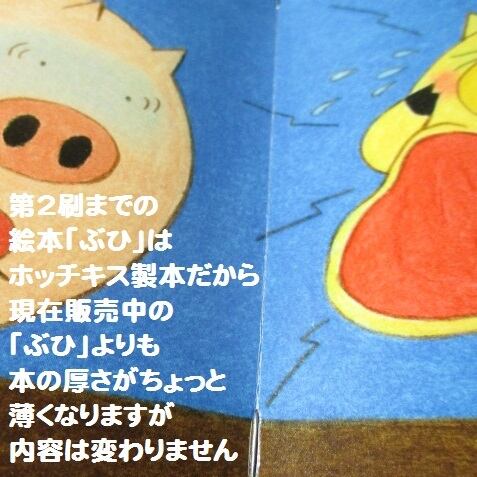 第2刷までの
絵本「ぶひ」は
ホッチキス製本だから
現在販売中の
「ぶひ」よりも
本の厚さがちょっと
薄くなりますが
内容は変わりません